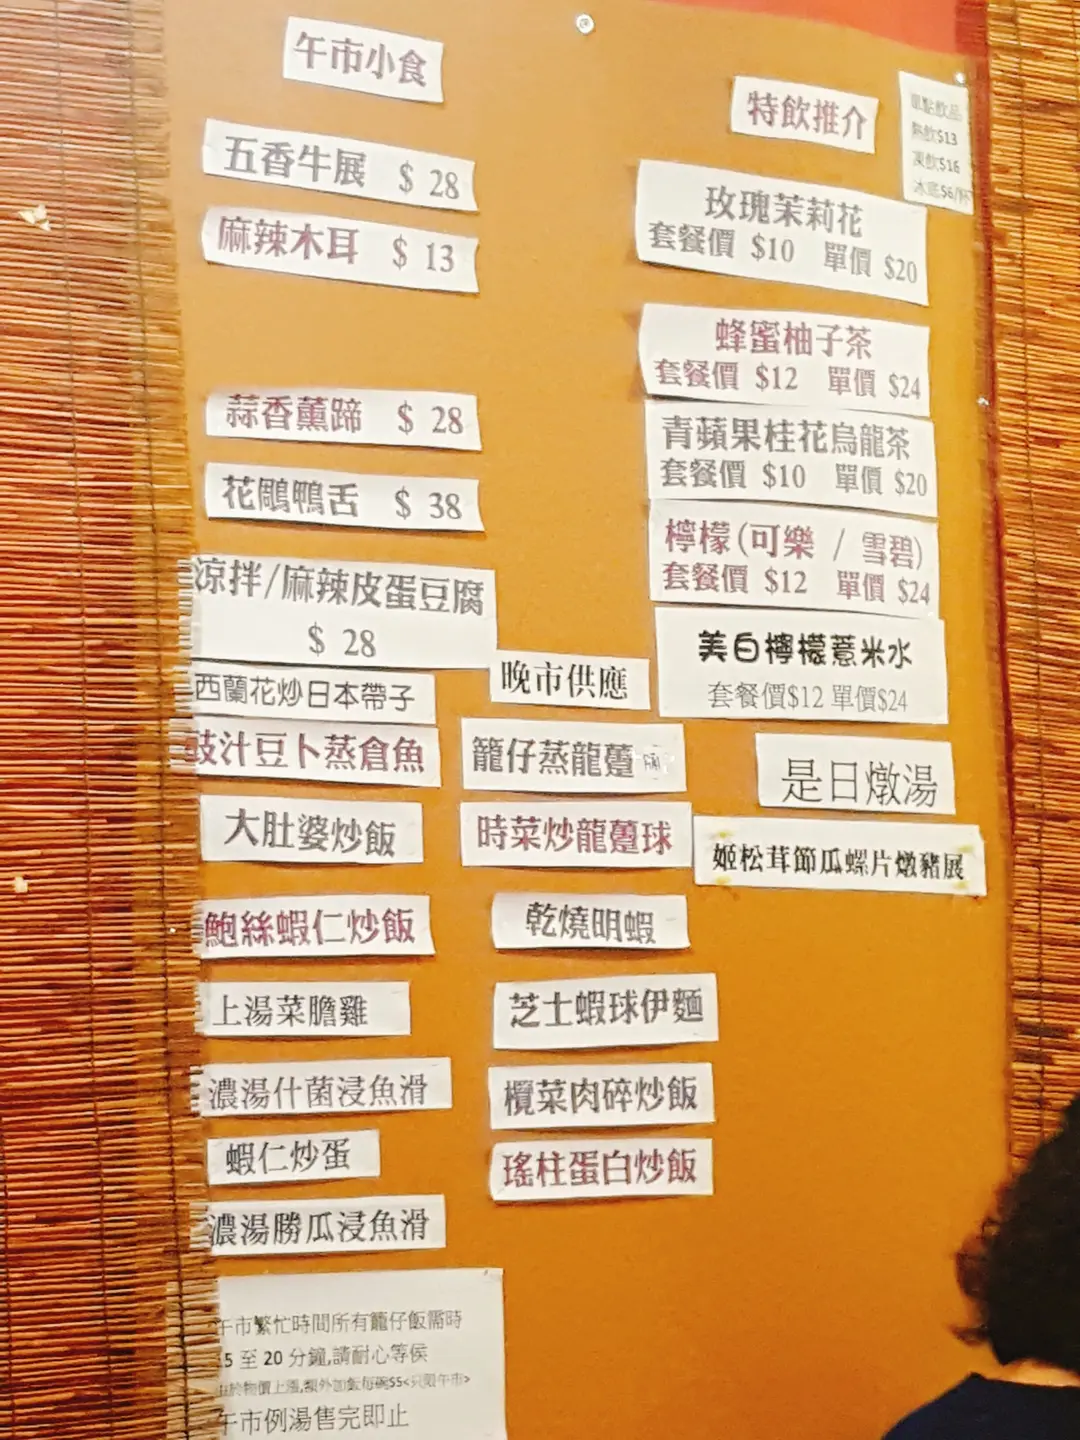 午市小食
五香牛展 $ 28
麻辣木耳 $ 13
蒜香薰蹄 $ 28
花鵰鴨舌 $ 38
涼拌/麻辣皮蛋豆腐
$ 28
西蘭花炒日本帶子
豉汁豆卜蒸倉魚
大肚婆炒飯
鮑絲蝦仁炒飯
上湯菜膽雞
濃湯什菌浸魚滑
蝦仁炒蛋
濃湯勝瓜浸魚滑
午市繁忙時間所有籠仔飯需時
15 至 20 分鐘,請耐心等侯
由於物價上漲,額外加飯每碗$5<只限午市>
午市例湯售完即止
晚市供應
籠仔蒸龍躉
時菜炒龍躉球
乾燒明蝦
芝士蝦球伊麵
欖菜肉碎炒飯
瑤柱蛋白炒飯
特飲推介
玫瑰茉莉花
套餐價 $10 單價 $20
蜂蜜柚子茶
套餐價 $12 單價 $24
青蘋果桂花烏龍茶
套餐價 $10 單價 $20
檸檬(可樂 / 雪碧)
套餐價 $12 單價 $24
美白檸檬薏米水
套餐價$12 單價$24
是日燉湯
姬松茸節瓜螺片燉豬展
單點飲品
熱飲$13
凍飲$16
冰底$6/杯